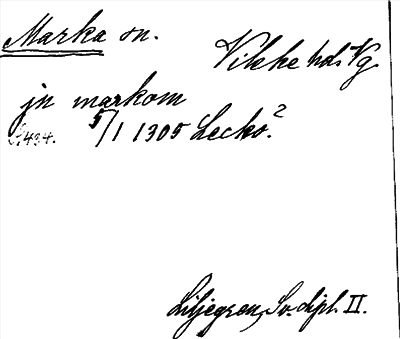 Marka sn. Vilske hds Vg.
jn markom
S. 434. 5/1 1305 Lecko.²
Liljegren, Sv. dipl. II.